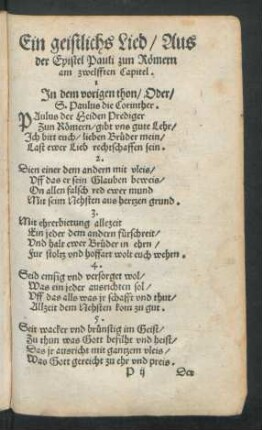 Ein geistlichs Lied / Aus
der Epistel Pauli zun Römern
am zwelfften Capitel.
1
In dem vorigen thon / Oder /
S. Paulus die Corinther.
PAulus der Heiden Prediger
Zun Römern / gibt vns gute Lehr /
Ich bitt euch / lieben Brüder mein /
Last ewer Lieb rechtschaffen sein.
2.
Dien einer dem andern mit vleis /
Vff das er sein Glauben beweis /
On allen falsch red ewer mund
Mit seim Nehsten aus hertzen grund.
3.
Mit ehrerbietung allezeit
Ein jeder dem andern fürschreit /
Vnd halt ewer Brüder in ehrn /
Fur stoltz vnd hoffart wolt euch wehren.
4.
Seid emsig vnd versorget wol /
Was ein jeder ausrichten sol /
Vff das alls was jr schafft vnd thut /
Allzeit dem Nehsten kom zu gut.
5.
Seit wacker vnd brünstig im Geist /
Zu thun was Gott befilht vnd heist /
Das jr ausricht mit gantzem vleis /
Was Gott gereicht zu ehr vnd preis.
P ij